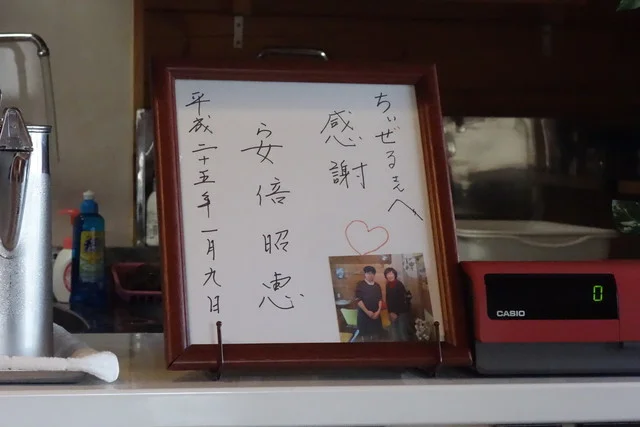 ちいぜるさんへ
感謝
安倍昭恵
平成二十五年一月九日
0
CASIO